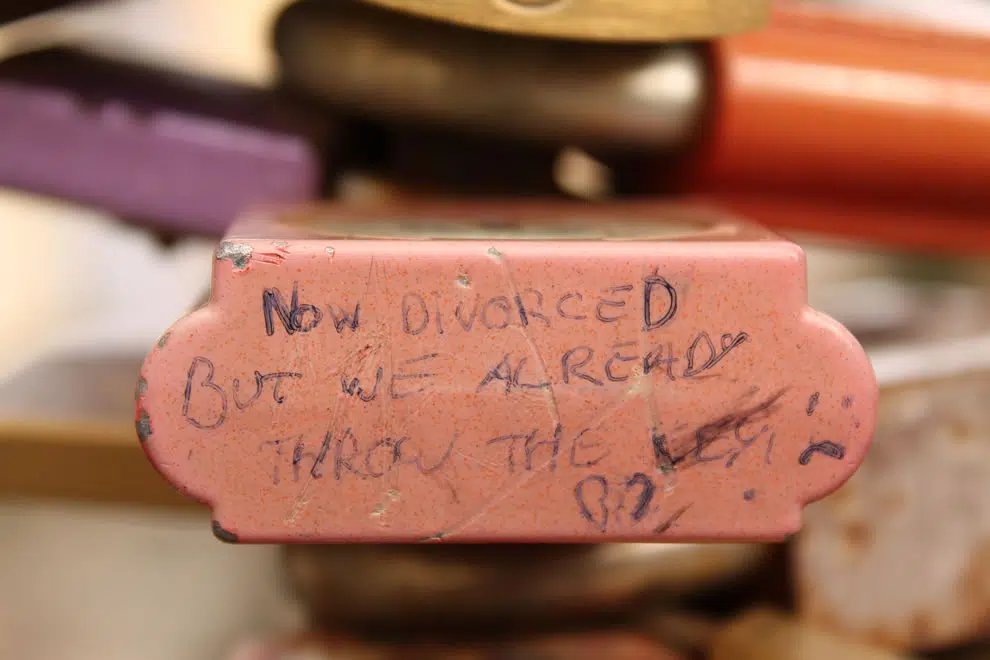 NOW DIVORCED
BUT WE ALREADY
THROW THE KEY